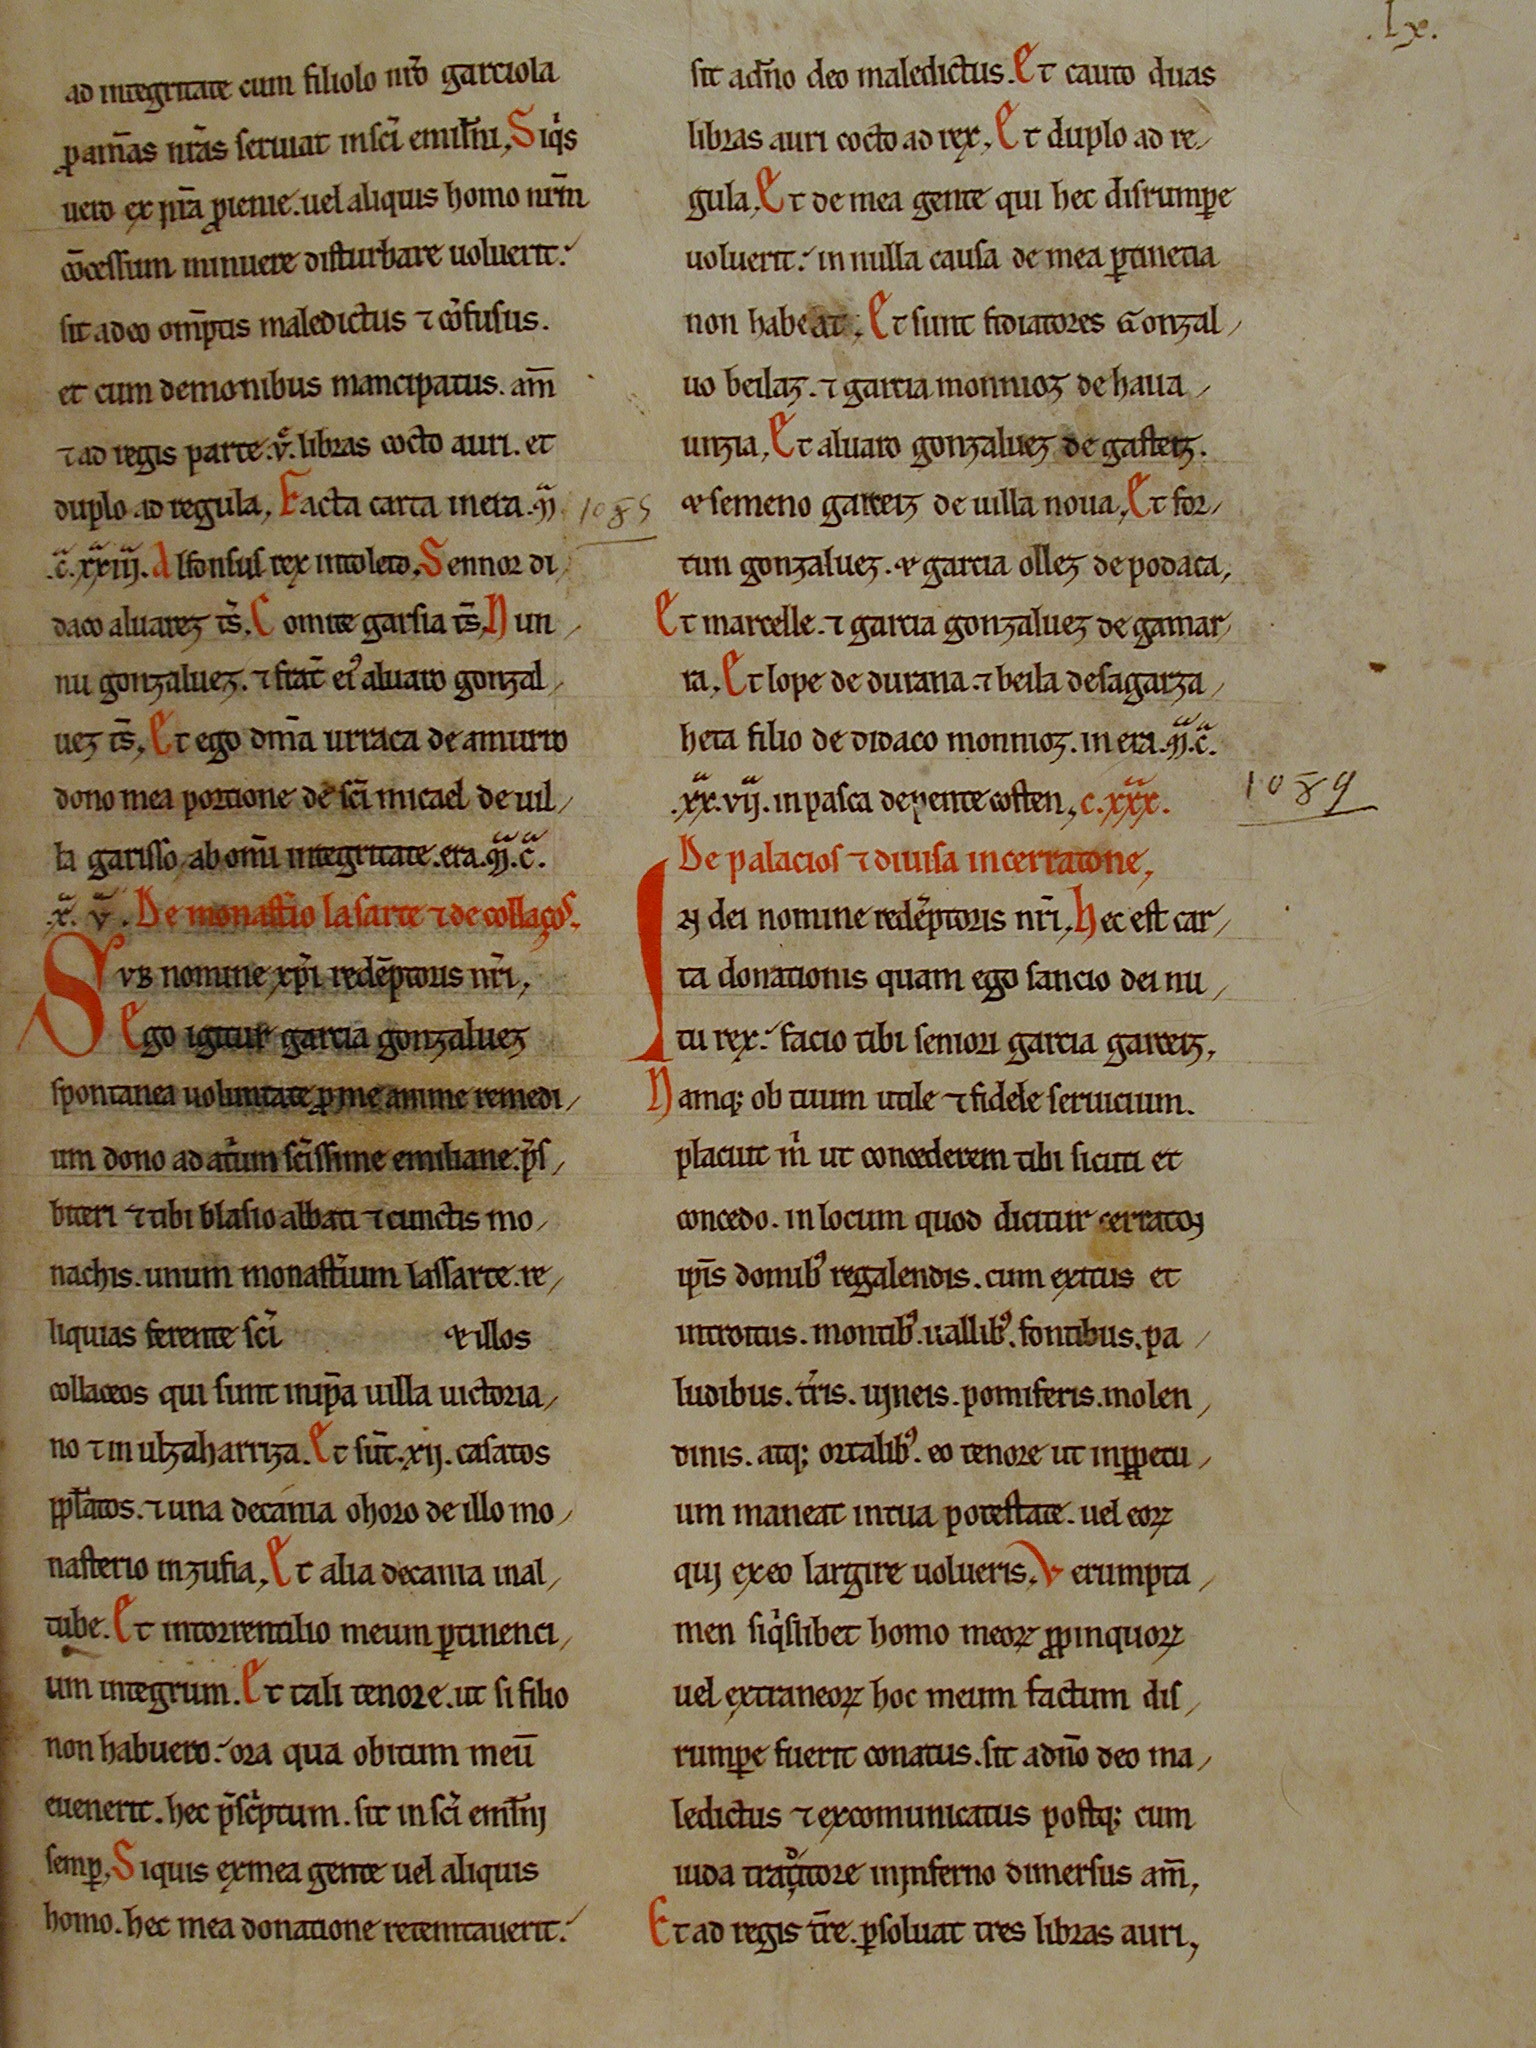 .lx.
ad integritate cum filiolo nr̄o garciola
ꝓ am̄as nr̄as seruiat in sc̄i emilīni, Siqͥs
uero ex nr̄a ꝓienie. uel aliquis homo nr̄m
cōcessum minuere disturbare uoluerit:
sit a deo om̄ptis maledictus ⁊ cōfusus.
et cum demonibus mancipatus. am̄
⁊ ad regis parte .v. libras cocto auri. et
duplo ad regula, Facta carta in era .M̄.
1085
.c̄.xxiii. Alfonsus rex in toleto, Sennor di
daco aluarez ts̄, Comite garsia ts̄, Nun
nu gonzaluez. ⁊ frat̄ eiꝰ aluaro gonzal
uez ts̄, Et ego dm̄a urraca de amurio
dono mea portione de sc̄i micael de uil
la garisso, ab om̄i integritate. era .M̄.c̄.
.x̄. v̄. De monast̄io lasarte ⁊ de collaços.
Svb nomine xp̄i redēptoris nr̄i,
Ego igitur garcia gonzaluez
spontanea uoluntate ꝓ me anime remedi
um dono ad atriū sc̄issime emiliane p̄s
biteri ⁊ tibi blasio abbati ⁊ cunctis mo
nachis. unum monast̄ium lassarte. re
liquias ferente sc̄i & illos
collaceos qui sunt in ip̄a uilla uictoria
no ⁊ in ulzaharriza. Et sūt .xij. casatos
ppl̄atos. ⁊ una decania ohoro de illo mo
nasterio in zufia, Et alia decania in al
tube. Et in torrentilio meum ꝑtinenci
um integrum. Et tali tenore. ut si filio
non habuero: ora qua obitum meū
euenerit. hec p̄sc̄ptum. sit in sc̄i emil̄nj
semꝑ, Siquis ex mea gente uel aliquis
homo. hec mea donatione retemtauerit:
sit a dn̄o deo maledictus. Et cauto duas
libras auri cocto ad rex, Et duplo ad re
gula, Et de mea gente qui hec disrumꝑe
uoluerit: in nulla causa de mea ꝑtinetia
non habeat, Et sunt fidiatores Gonzal
uo beilaz. ⁊ garcia monnioz de haua
unzia, Et aluaro gonzaluez de gasteiz.
& semeno garceiz de uilla noua, Et for
tun gonzaluez. & garcia ollez de podaca,
Et marcelle. ⁊ garcia gonzaluez de gamar
ra, Et lope de durana. ⁊ beila de sagarza
heta filio de didaco monnioz. in era .M̄.c̄.
.xx.vij. in pasca de pente costen, c.xxx.
1089
De palacios ⁊ diuisa in cerratone,
IN dei nomine redēptoris nr̄i, Hec est car
ta donationis quam ego sancio dei nu
tu rex: facio tibi seniori garcia garceiz,
Namqꝫ ob tuum utile ⁊ fidele seruicium.
placuit m̄ ut concederem tibi sicuti et
concedo. in locum quod dicitur cerraton
ip̄is domibꝰ regalendis. cum exitus et
introitus. montibꝰ. uallibꝰ. fontibus. pa
ludibus. tr̄is. ujneis. pomiferis. molen
dinis. atqꝫ ortalibꝰ. eo tenore ut in ꝑpetu
um maneat in tua potestate. uel eoꝝ
quj ex eo largire uolueris, Verumpta
men siqͥslibet homo meoꝝ ꝓpinquoꝝ
uel extraneoꝝ hoc meum factum dis
rumꝑe fuerit conatus. sit a dn̄o deo ma
ledictus ⁊ excomunicatus postqꝫ cum
iuda traditore in jnferno dimersus am̄,
Et ad regis tr̄e. ꝑsoluat tres libras auri,